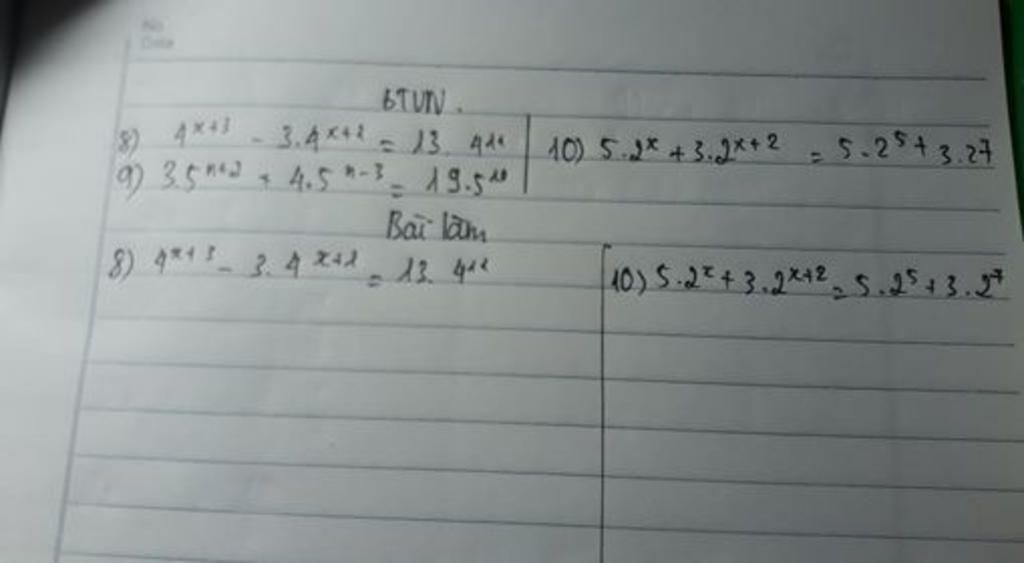 No
Date
BTVN.
8) 4ˣ⁺³ - 3.4ˣ⁺¹ = 13. 4¹¹
9) 3.5ⁿ⁺² + 4.5ⁿ⁻³ = 19.5¹⁰
10) 5.2ˣ + 3.2ˣ⁺² = 5.2⁵ + 3.27
Bài làm
8) 4ˣ⁺³ - 3.4ˣ⁺¹ = 13. 4¹¹
10) 5.2ˣ + 3.2ˣ⁺² = 5.2⁵ + 3.2⁷